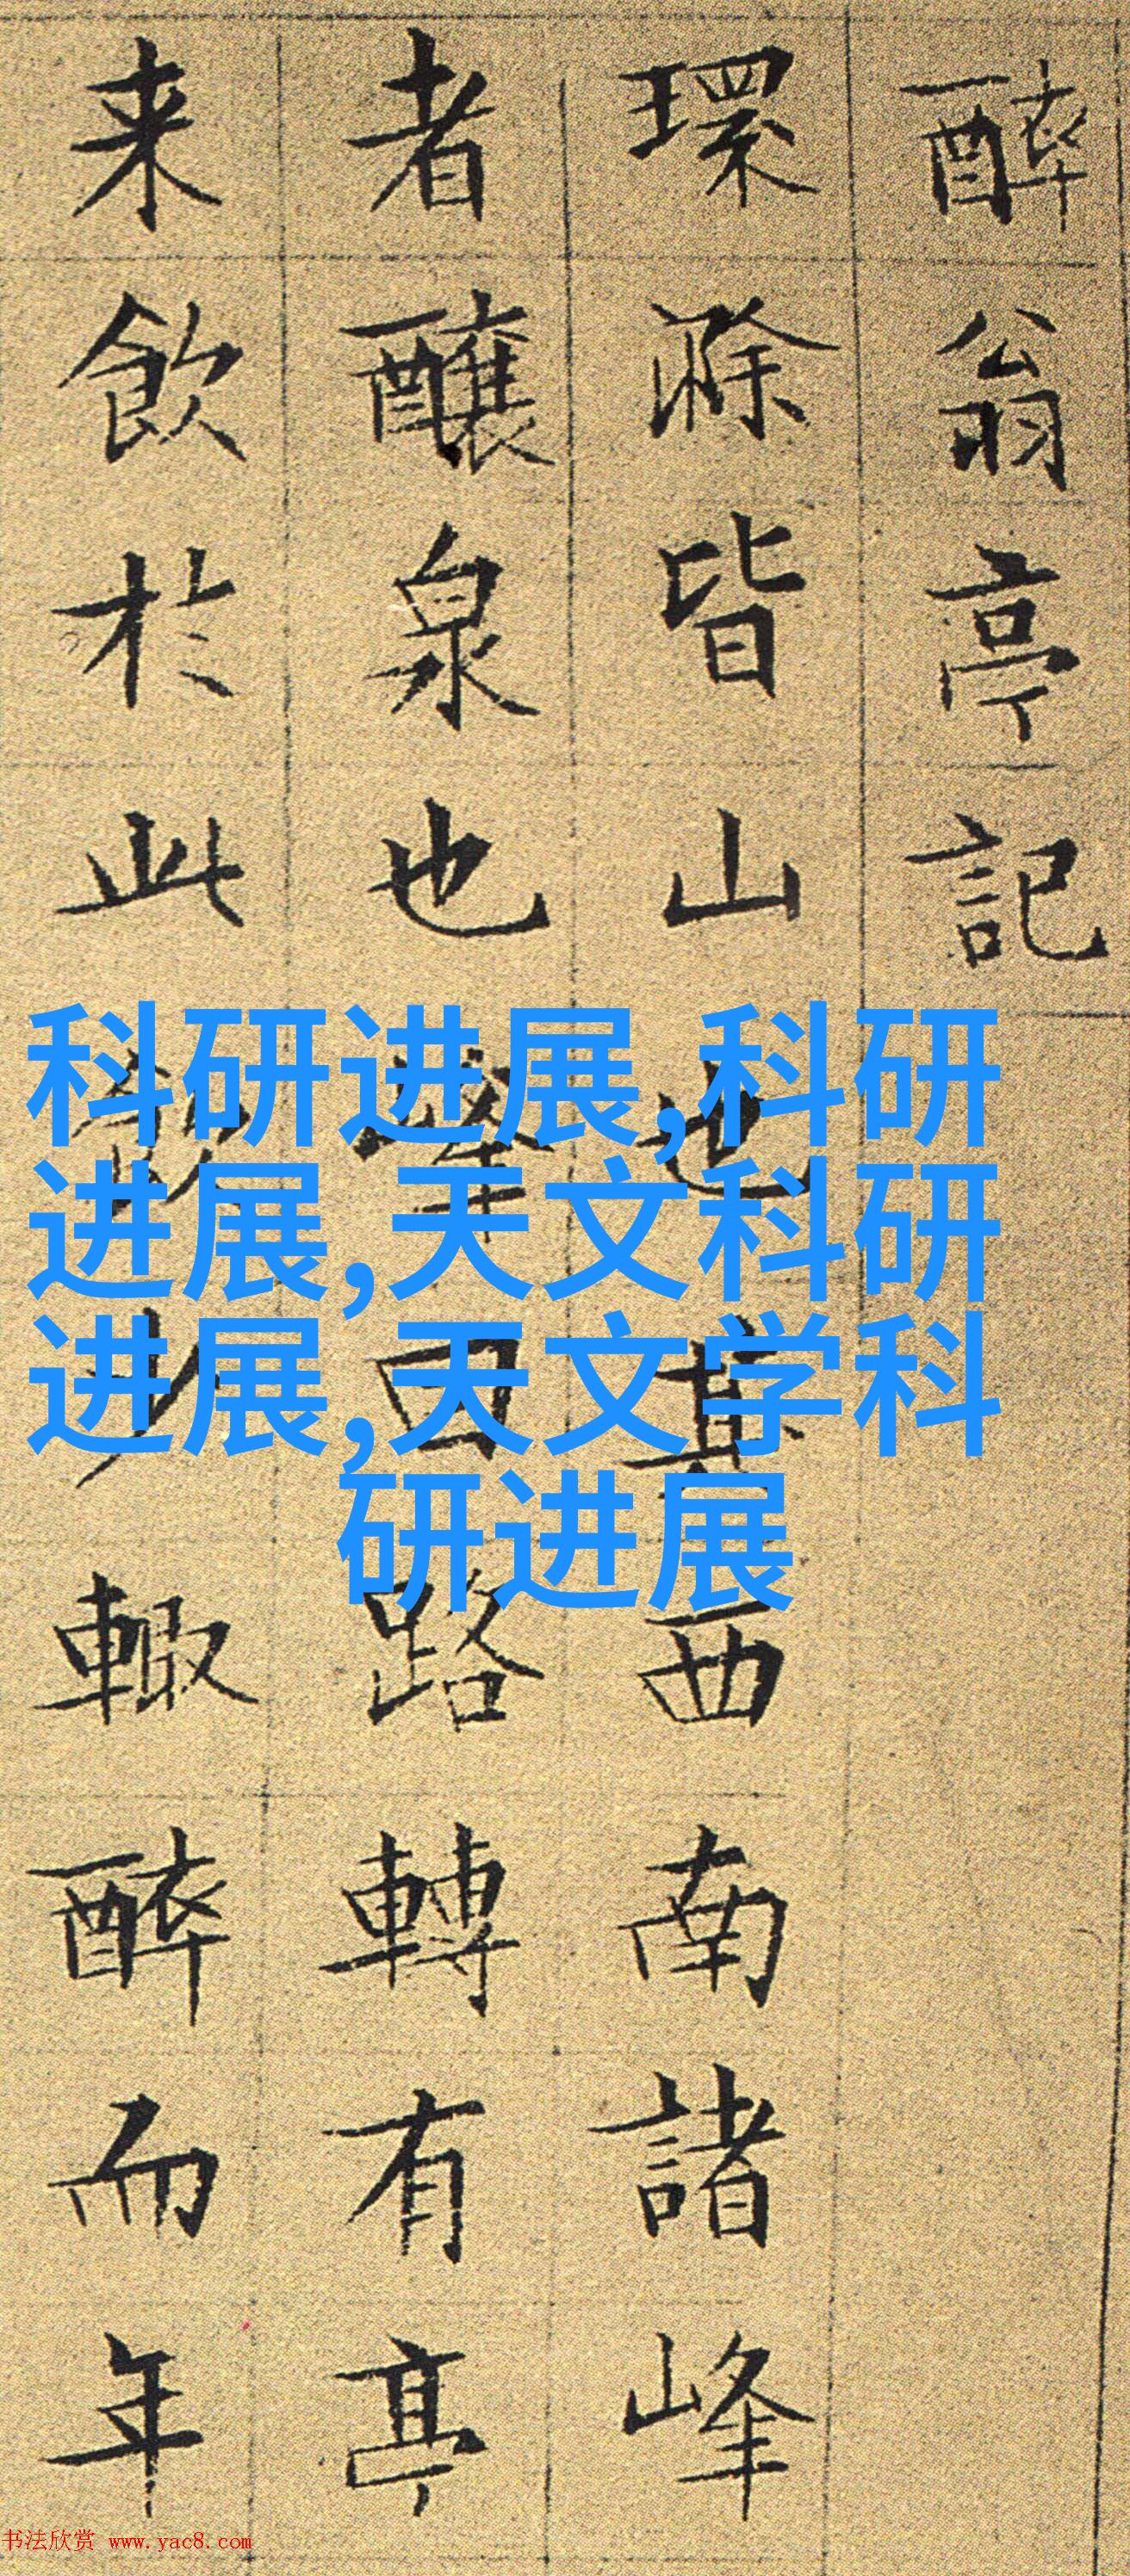 醉翁亭記
環滁皆山也其西南諸峰
者釀泉也峯回路轉有亭
来飲於此飲少輒醉而年
科研进展,科研
进展,天文科研
进展,天文学科
研进展
书法欣赏 www.yac8.com